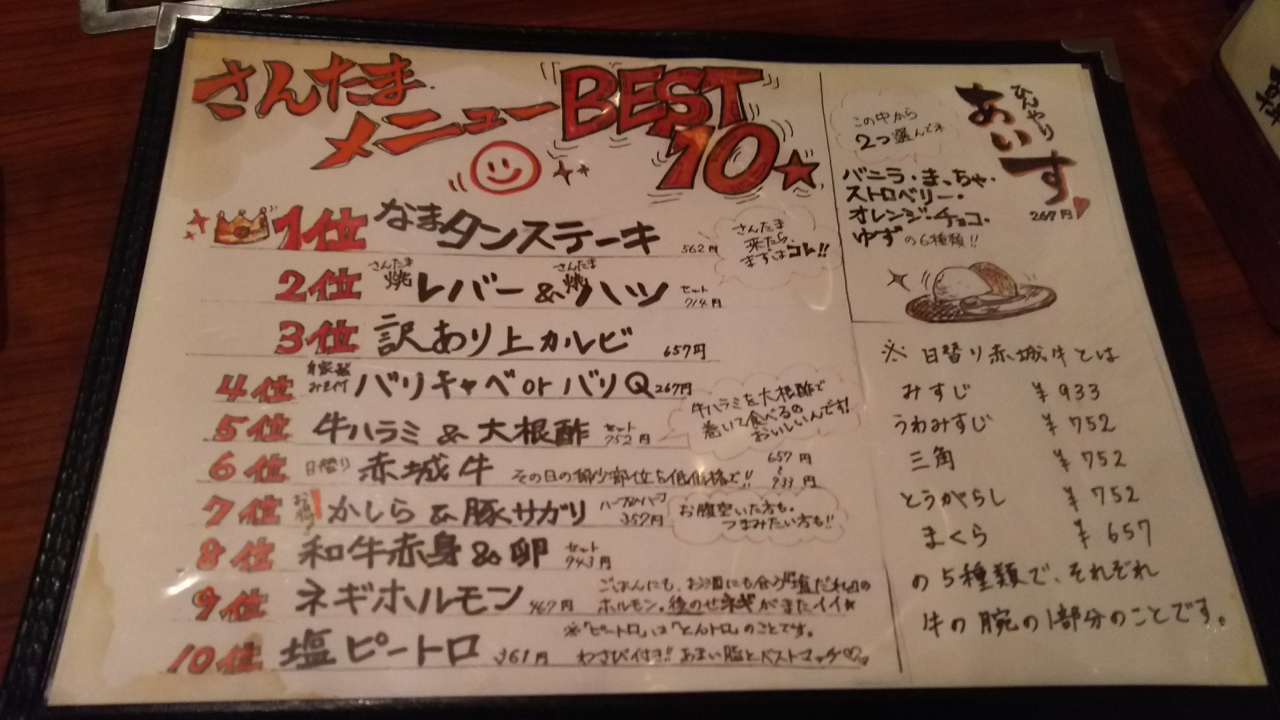 さんたま
メニューBEST
10★
1位 なまタンステーキ 562円
さんたま
来たら、
まずはコレ!!
2位 さんたま焼 レバー & さんたま焼 ハツ セット 714円
3位 訳あり上カルビ 657円
4位 自家製みそ付 バリキャベ or バリQ 267円
5位 牛ハラミ & 大根酢 セット 752円
牛ハラミを大根酢で
巻いて食べるの
おいしいんです!
6位 日替り 赤城牛 その日の希少部位を低価格で!! 657円 〜 933円
7位 かしら & 豚サガリ ハーフ&ハーフ 357円
お腹空いた方も、
つまみたい方も!!
8位 和牛赤身 & 卵 セット 943円
9位 ネギホルモン 467円
ごはんにも、お酒にも合う『塩だれ』の
ホルモン。後のせネギがまたイイ★
10位 塩ピートロ 361円
※「ピートロ」は「とんトロ」のことです。
わさび付き!! あまい脂とベストマッチ♡
ひんやり
あいす
267円
この中から
2つ選んでネ
バニラ・まっちゃ・
ストロベリー・
オレンジ・チョコ・
ゆずの6種類!!
※ 日替り赤城牛とは
みすじ ¥933
うわみすじ ¥752
三角 ¥752
とうがらし ¥752
まくら ¥657
の5種類で、それぞれ
牛の腕の1部分のことです。